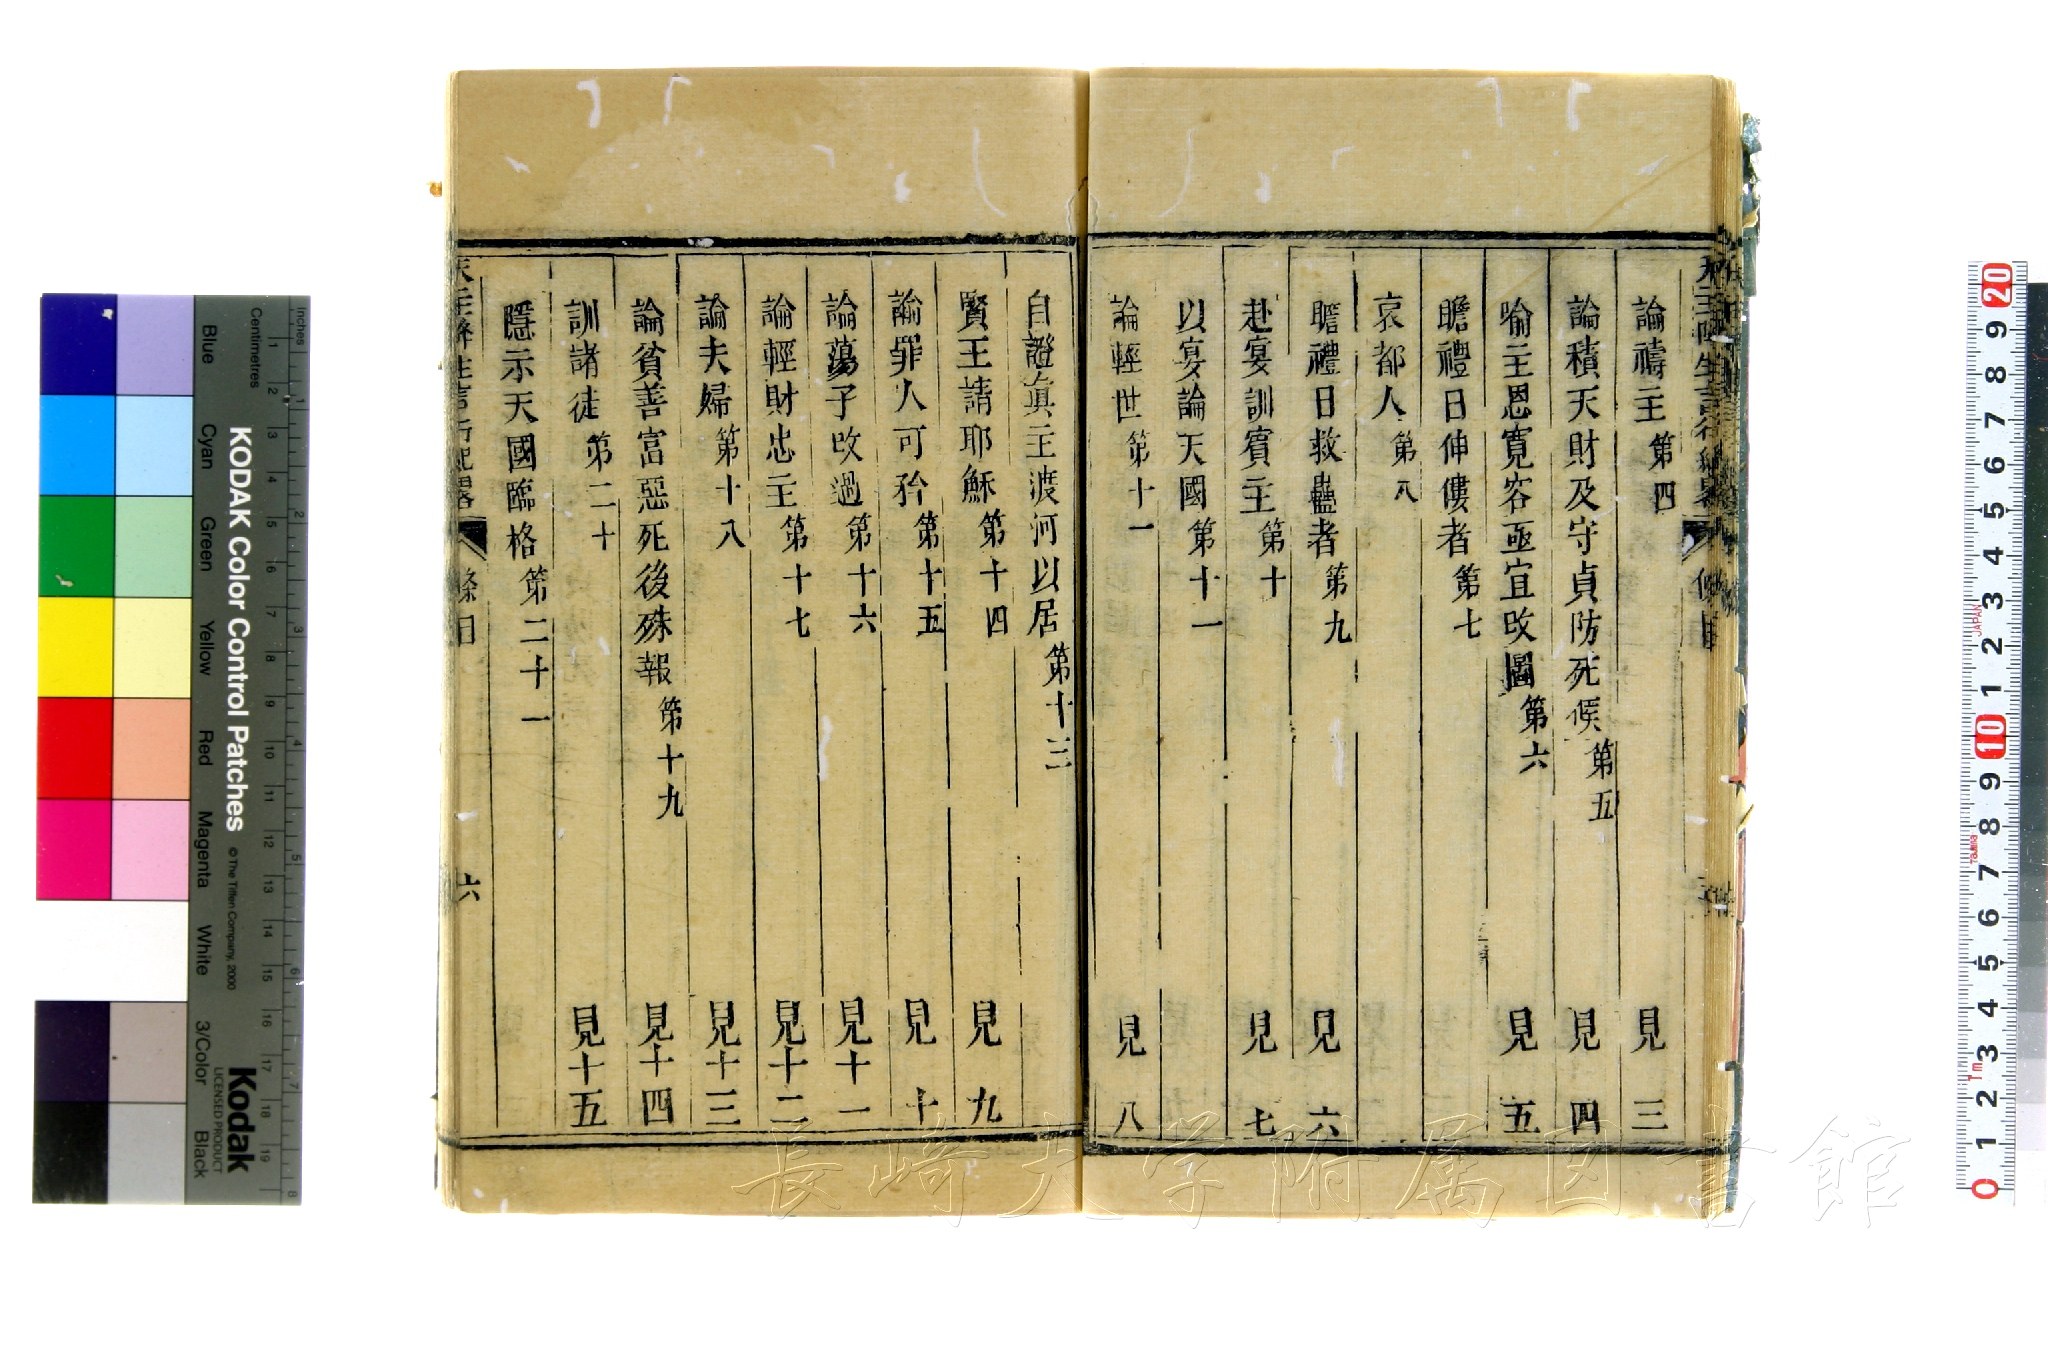 論禱主 第四 見 三
論積天財及守貞防死候 第五 見 四
喻主恩寬容亟宜改圖 第六 見 五
瞻禮日伸僂者 第七
哀都人 第八
瞻禮日救蠱者 第九 見 六
赴宴訓賓主 第十 見 七
以宴論天國 第十一
論輕世 第十一 見 八
自證真主渡河以居 第十三
賢王請耶穌 第十四 見 九
論罪人可矜 第十五 見 十
論蕩子改過 第十六 見十一
論輕財忠主 第十七 見十二
論夫婦 第十八 見十三
論貧善富惡死後殊報 第十九 見十四
訓諸徒 第二十 見十五
隱示天國臨格 第二十一
天主降生言行紀畧 條目 六
KODAK Color Control Patches
© The Tiffen Company, 2000
Kodak
LICENSED PRODUCT
Inches
Centimetres
Blue
Cyan
Green
Yellow
Red
Magenta
White
3/Color
Black
長崎大学附属図書館
JAPAN